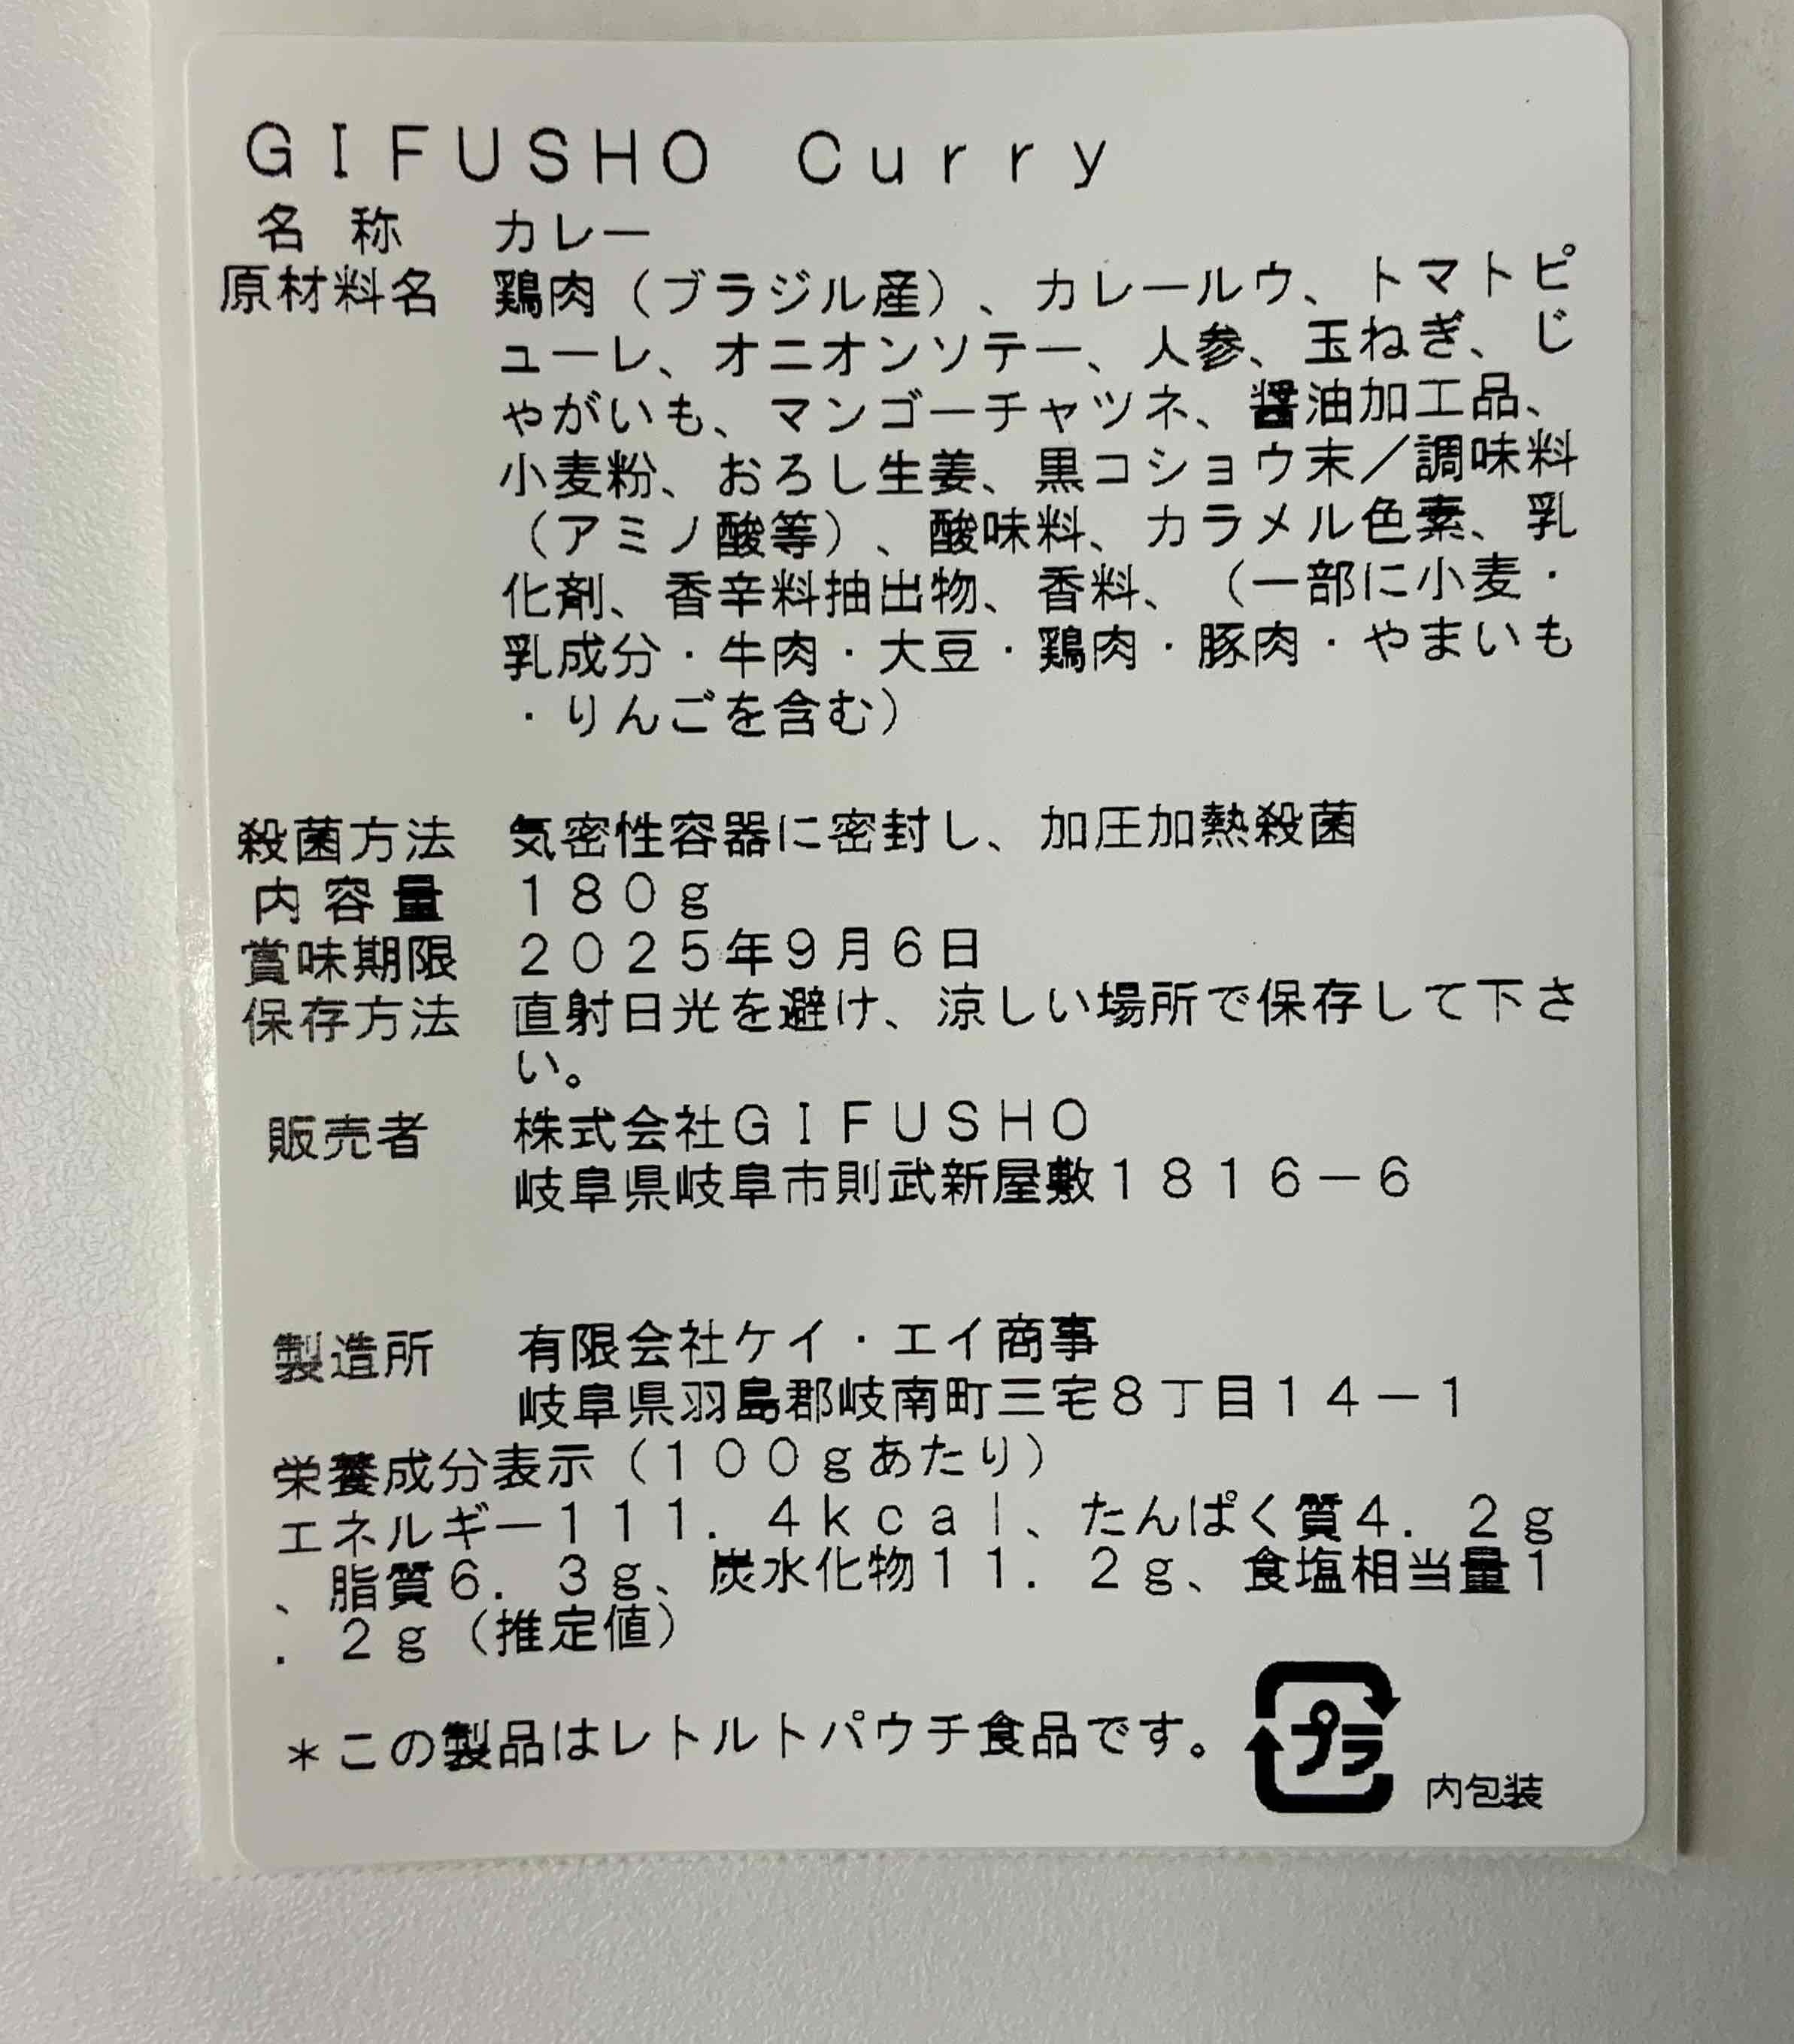 GIFUSHO Curry
名称 カレー
原材料名 鶏肉(ブラジル産)、カレールウ、トマトピ
ューレ、オニオンソテー、人参、玉ねぎ、じ
ゃがいも、マンゴーチャツネ、醤油加工品、
小麦粉、おろし生姜、黒コショウ末/調味料
(アミノ酸等)、酸味料、カラメル色素、乳
化剤、香辛料抽出物、香料、(一部に小麦・
乳成分・牛肉・大豆・鶏肉・豚肉・やまいも
・りんごを含む)
殺菌方法 気密性容器に密封し、加圧加熱殺菌
内容量 180g
賞味期限 2025年9月6日
保存方法 直射日光を避け、涼しい場所で保存して下さ
い。
販売者 株式会社GIFUSHO
岐阜県岐阜市則武新屋敷1816-6
製造所 有限会社ケイ・エイ商事
岐阜県羽島郡岐南町三宅8丁目14-1
栄養成分表示(100gあたり)
エネルギー111.4kcal、たんぱく質4.2g
、脂質6.3g、炭水化物11.2g、食塩相当量1
.2g(推定値)
*この製品はレトルトパウチ食品です。
プラ
内包装